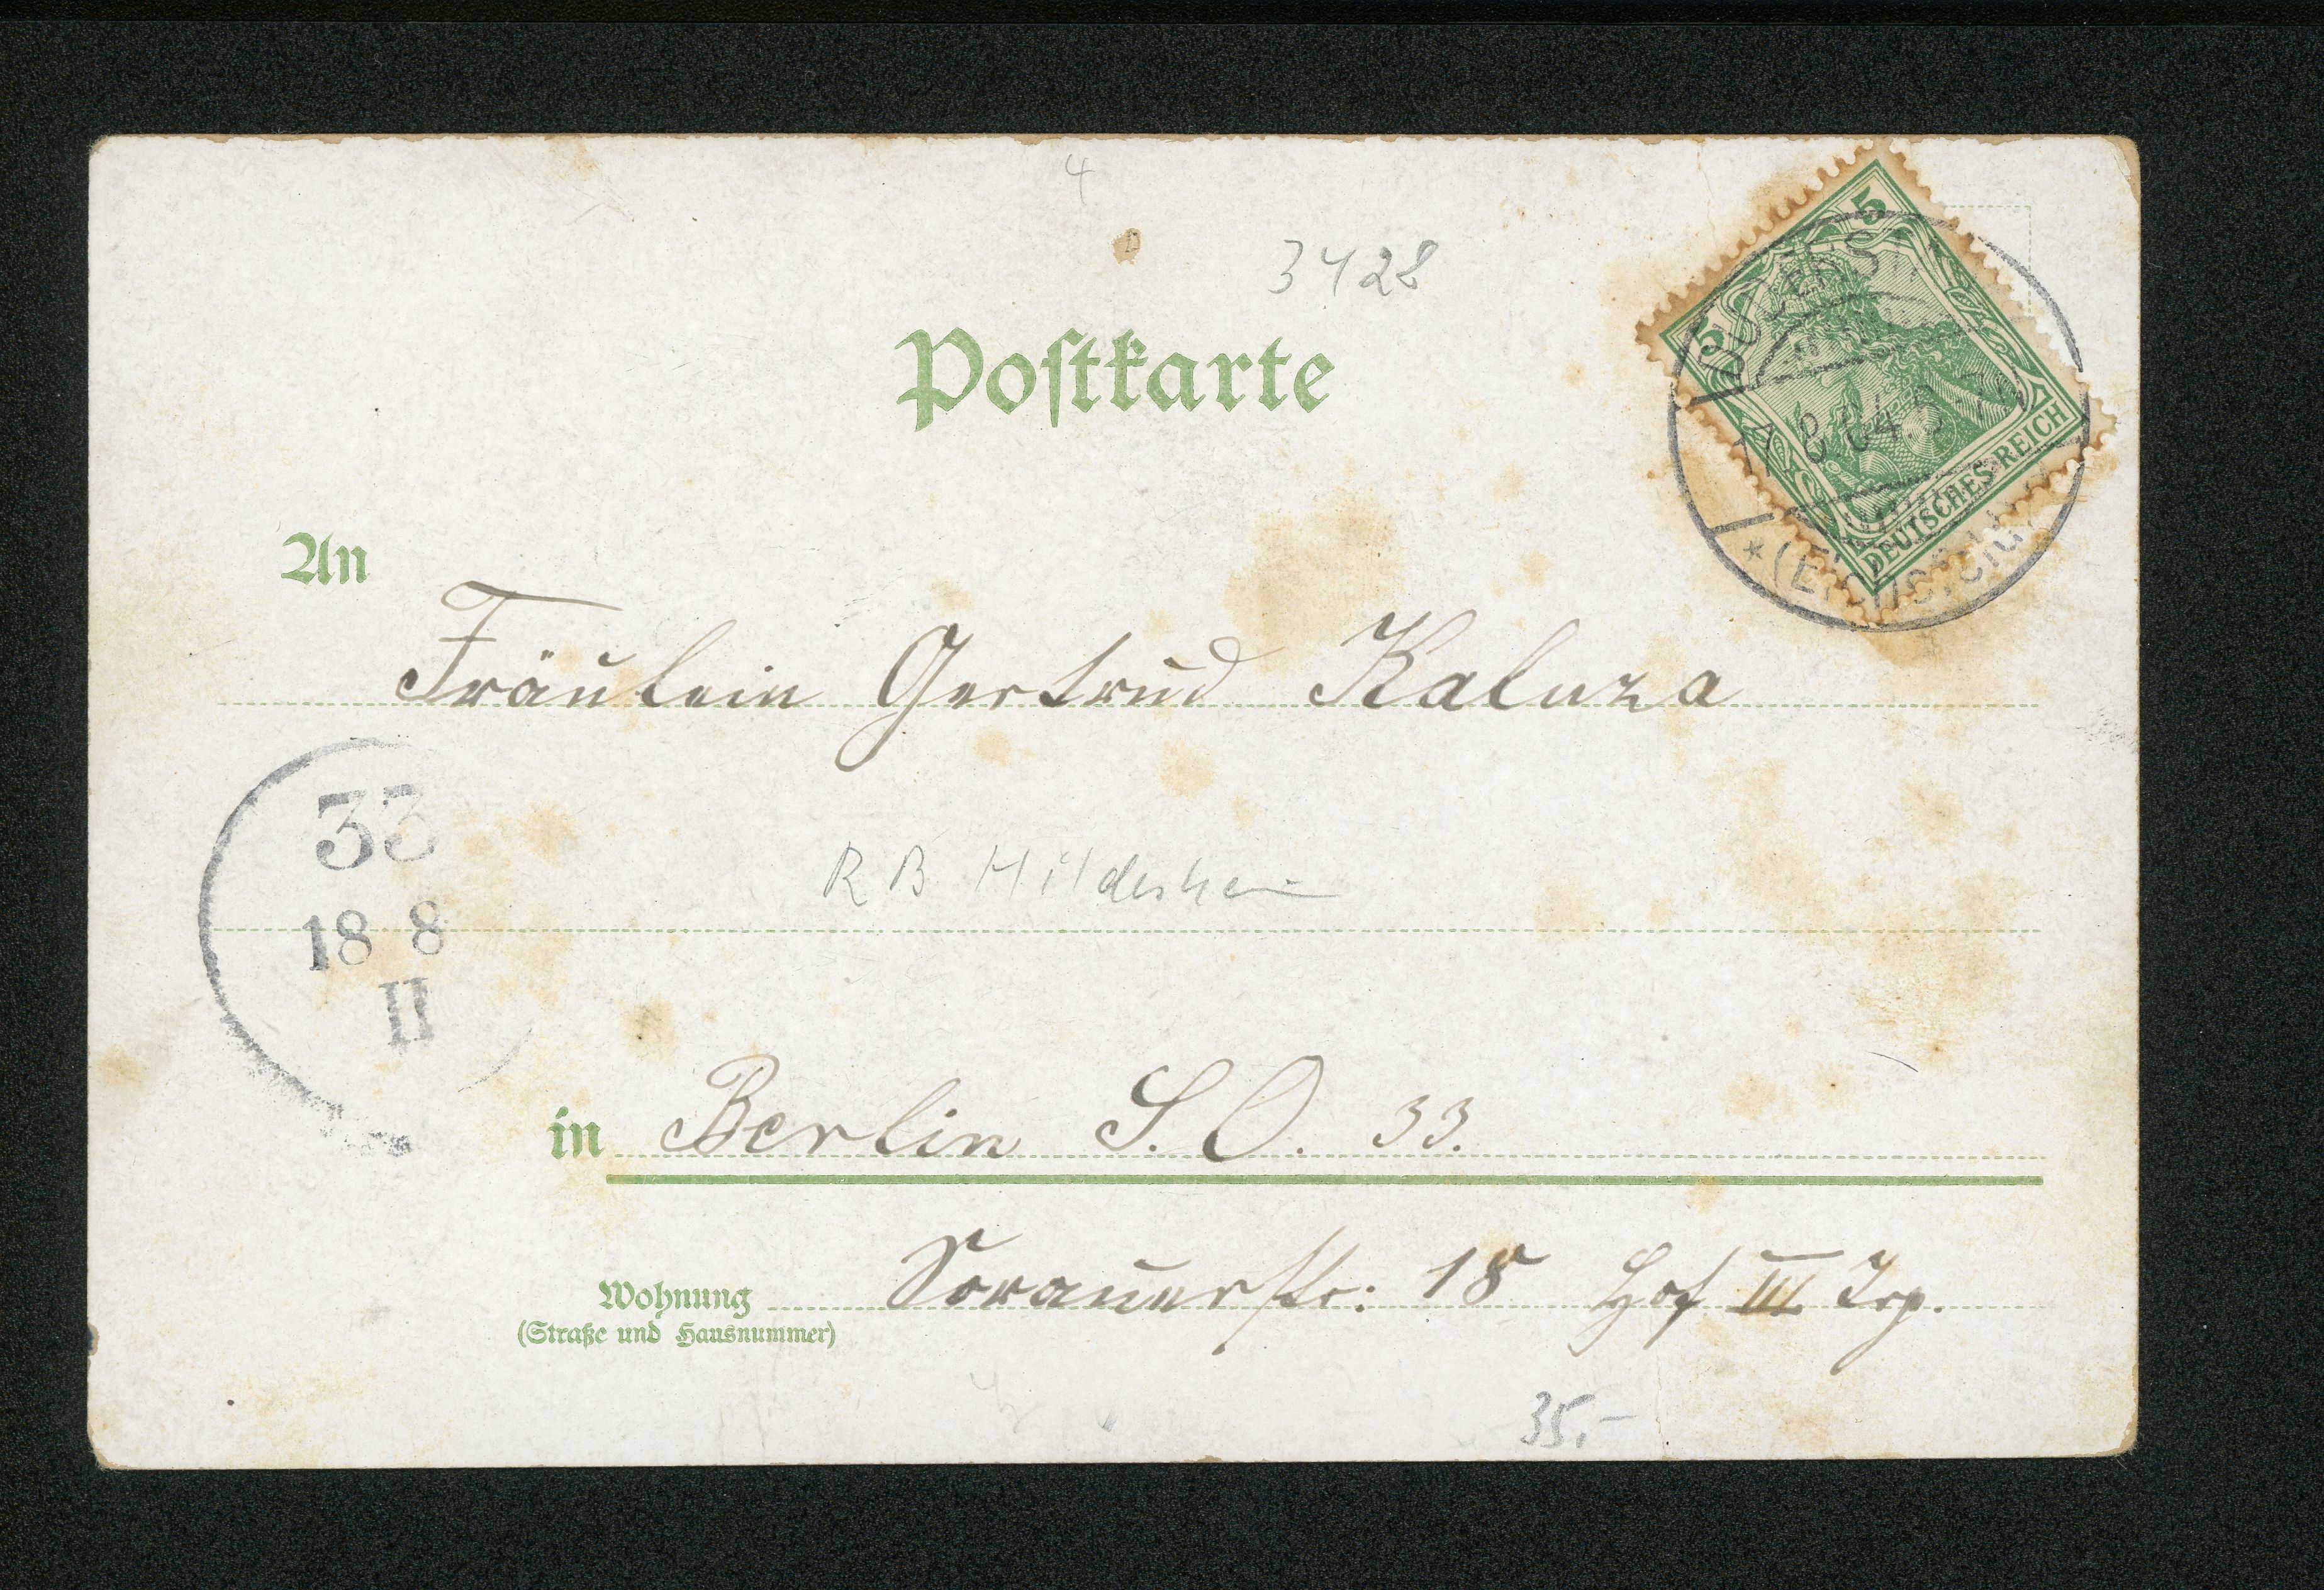 4
3428
Postkarte
5
5
17.8.04.
DEUTSCHES REICH
An
Fräulein Gertrud Kaluza
33
18 8
II
R B Hildesheim
in Berlin S. O. 33.
Wohnung Sorauerstr: 18 Hof III Trp.
(Straße und Hausnummer)
35,-